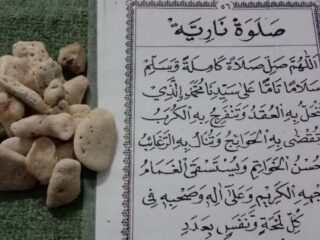 ٥٦
صَلَوةْ نَارِيَّةْ
اَللّٰهُمَّ صَلِّ صَلَاةً كَامِلَةً وَسَلِّمْ
سَلَامًا تَامًّا عَلٰى سَيِّدِنَا مُحَمَّدِ الَّذِيْ
تَنْحَلُّ بِهِ الْعُقَدُ وَتَنْفَرِجُ بِهِ الْكُرَبُ
وَتُقْضٰى بِهِ الْحَوَائِجُ وَتُنَالُ بِهِ الرَّغَائِبُ
وَحُسْنُ الْخَوَاتِمِ وَيُسْتَسْقَى الْغَمَامُ
بِوَجْهِهِ الْكَرِيْمِ وَعَلٰى اٰلِهِ وَصَحْبِهِ فِيْ
كُلِّ لَمْحَةٍ وَنَفَسٍ بِعَدَدِ